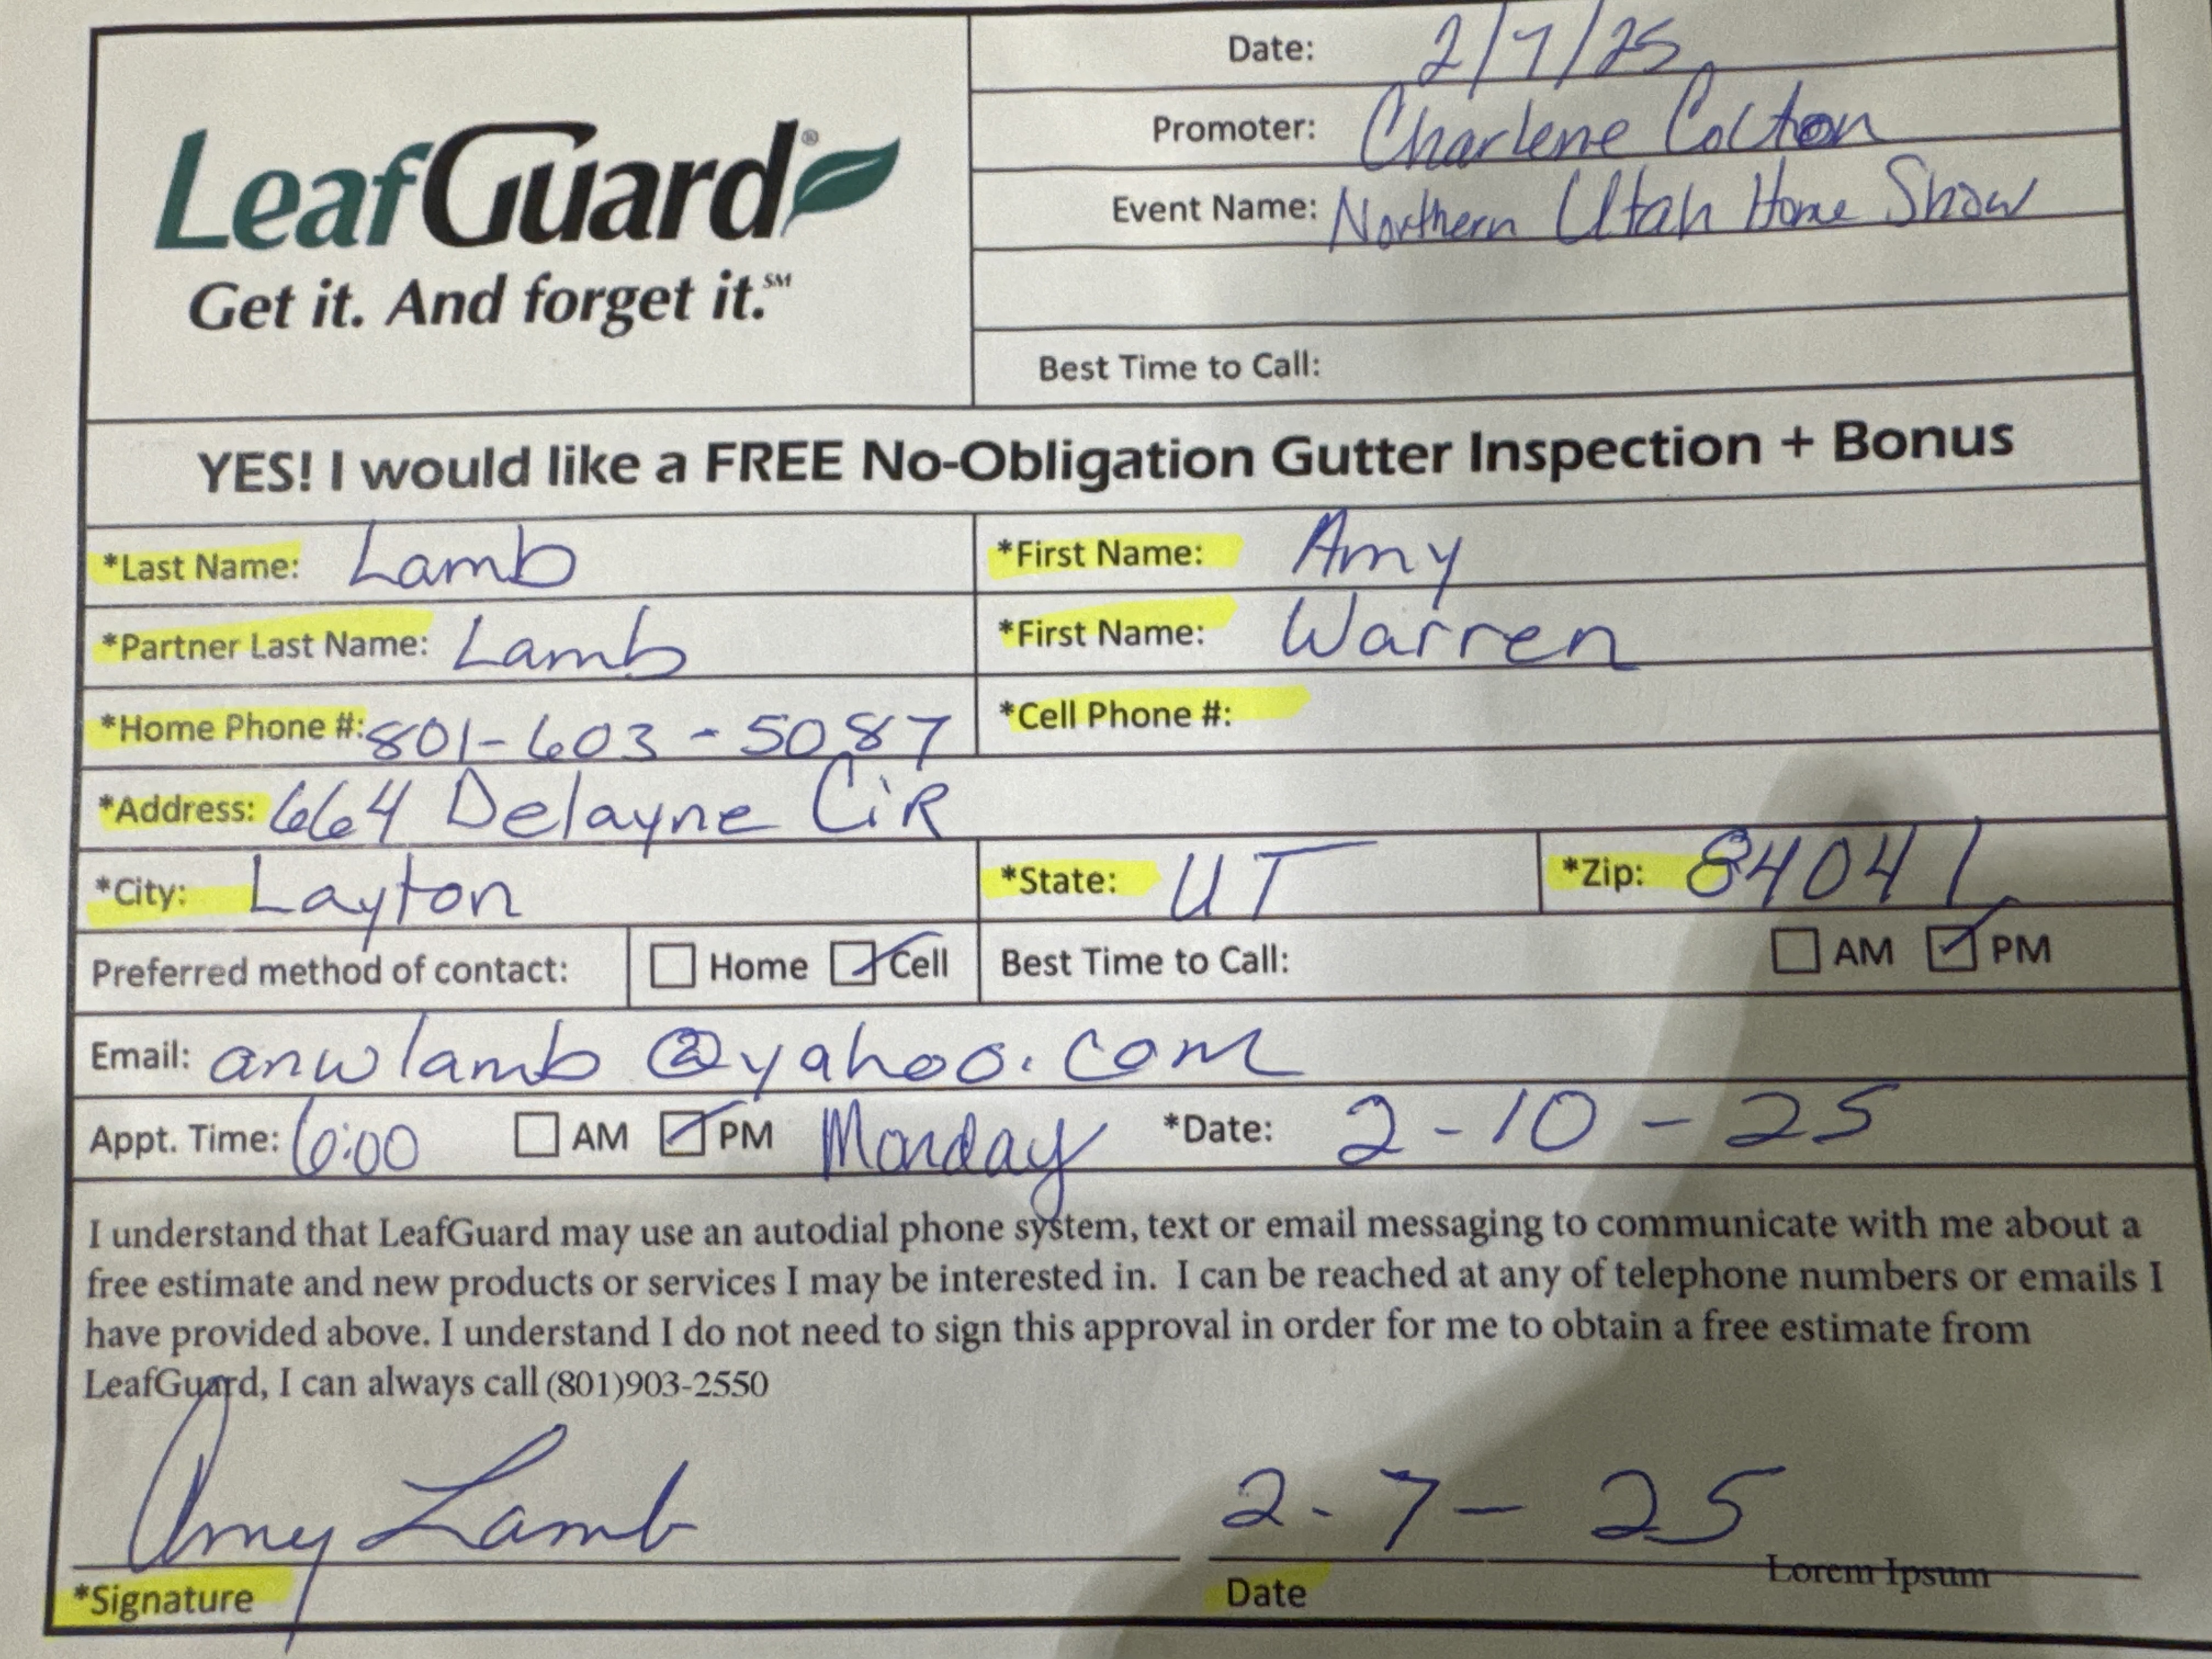 LeafGuard®
Get it. And forget it.℠
Date: 2/7/25
Promoter: Charlene Colton
Event Name: Northern Utah Home Show
Best Time to Call:
YES! I would like a FREE No-Obligation Gutter Inspection + Bonus
*Last Name: Lamb *First Name: Amy
*Partner Last Name: Lamb *First Name: Warren
*Home Phone #: 801-603-5087 *Cell Phone #:
*Address: 664 Delayne CiR
*City: Layton *State: UT *Zip: 84041
Preferred method of contact: Home Cell Best Time to Call: AM PM
Email: anwlamb@yahoo.com
Appt. Time: 6:00 AM PM Monday *Date: 2-10-25
I understand that LeafGuard may use an autodial phone system, text or email messaging to communicate with me about a
free estimate and new products or services I may be interested in. I can be reached at any of telephone numbers or emails I
have provided above. I understand I do not need to sign this approval in order for me to obtain a free estimate from
LeafGuard, I can always call (801)903-2550
Amy Lamb 2-7-25
Lorem Ipsum
*Signature Date